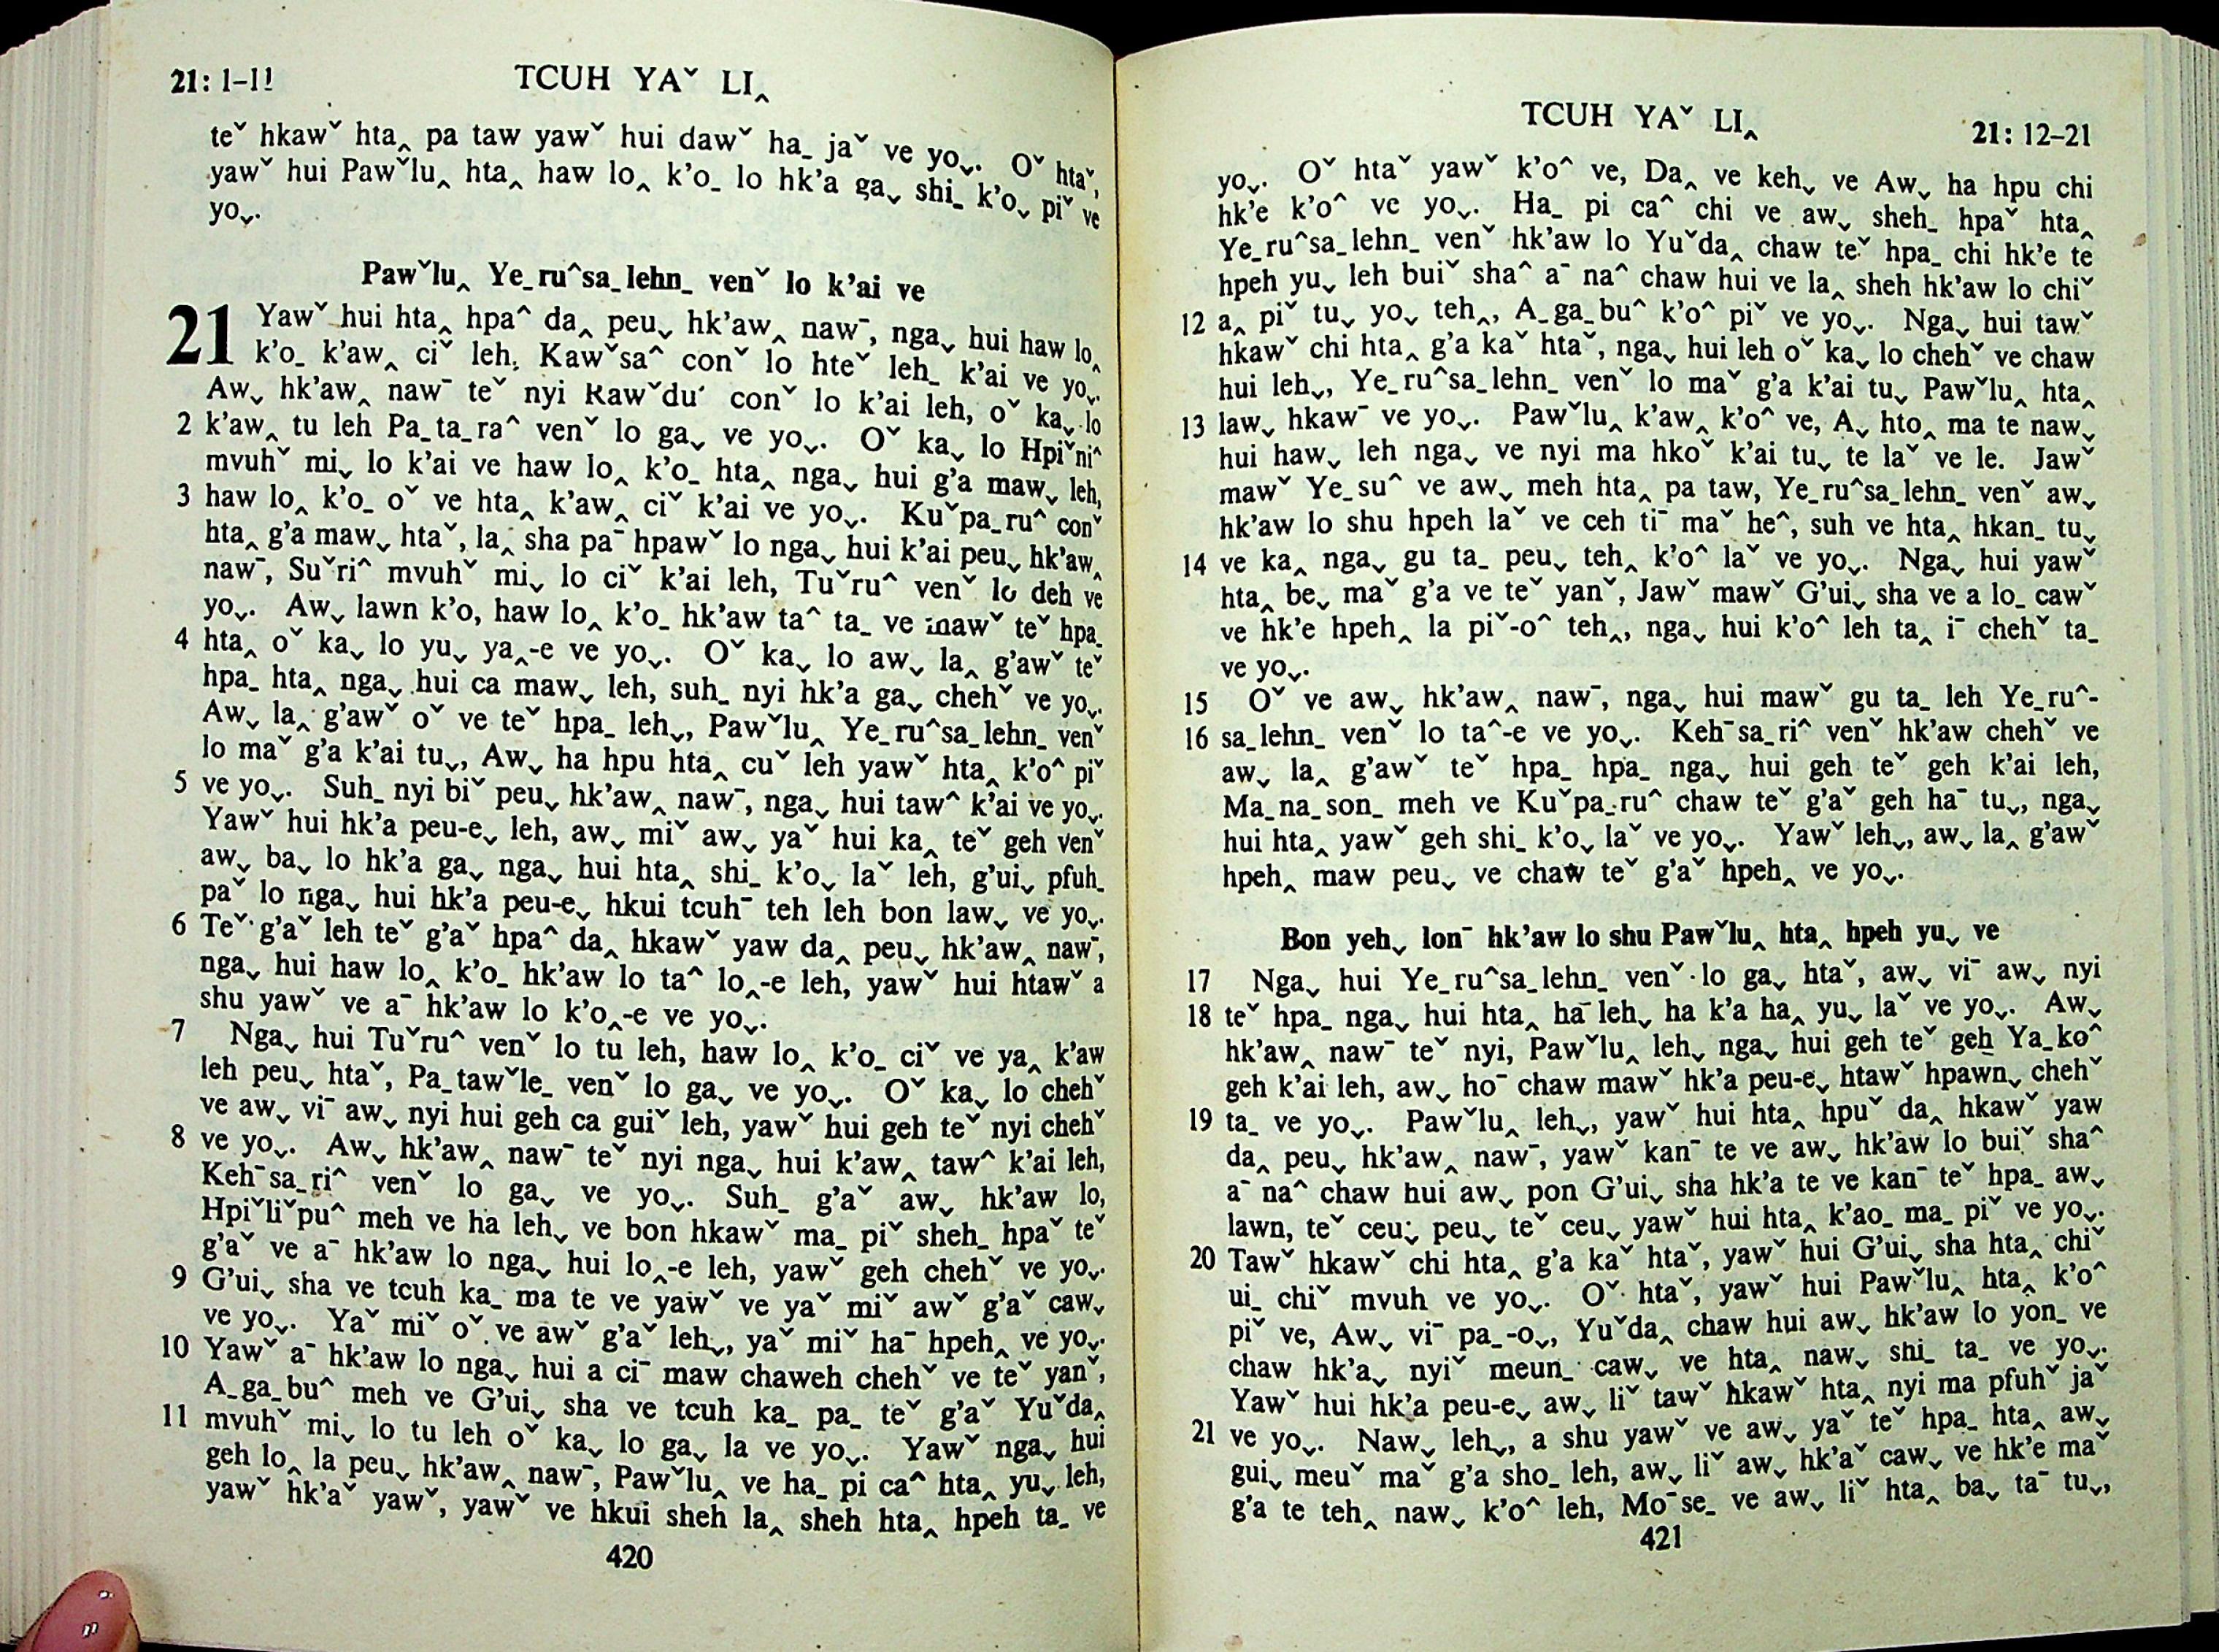 21: 1–11
TCUH YAˇ LI‸
teˇ hkawˇ hta‸ pa taw yawˇ hui dawˇ ha_ jaˇ ve yoˬ. Oˇ htaˇ,
yawˇ hui Pawˇlu‸ hta‸ haw lo‸ k’o_ lo hk’a gaˬ shi_ k’oˬ piˇ ve
yoˬ.
Pawˇlu‸ Ye_ru^sa_lehn_ venˇ lo k’ai ve
21 Yawˇ hui hta‸ hpa^ da‸ peuˬ hk’aw‸ naw¯, ngaˬ hui haw lo‸
k’o_ k’aw‸ ciˇ leh, Kawˇsa^ conˇ lo hteˇ leh_ k’ai ve yoˬ.
Awˬ hk’aw‸ naw¯ teˇ nyi Rawˇdu^ conˇ lo k’ai leh, oˇ kaˬ lo
2 k’aw‸ tu leh Pa_ta_ra^ venˇ lo gaˬ ve yoˬ. Oˇ kaˬ lo Hpiˇni^
mvuhˇ miˬ lo k’ai ve haw lo‸ k’o_ hta‸ ngaˬ hui g’a mawˬ leh,
3 haw lo‸ k’o_ oˇ ve hta‸ k’aw‸ ciˇ k’ai ve yoˬ. Kuˇpa_ru^ conˇ
hta‸ g’a mawˬ htaˇ, la‸ sha pa¯ hpawˇ lo ngaˬ hui k’ai peuˬ hk’aw‸
naw¯, Suˇri^ mvuhˇ miˬ lo ciˇ k’ai leh, Tuˇru^ venˇ lo deh ve
yoˬ. Awˬ lawn k’o, haw lo‸ k’o_ hk’aw ta^ ta_ ve mawˇ teˇ hpa_
4 hta‸ oˇ kaˬ lo yuˬ ya‸-e ve yoˬ. Oˇ kaˬ lo awˬ la‸ g’awˇ teˇ
hpa_ hta‸ ngaˬ hui ca mawˬ leh, suh_ nyi hk’a gaˬ chehˇ ve yoˬ.
Awˬ la‸ g’awˇ oˇ ve teˇ hpa_ lehˬ, Pawˇlu‸ Ye_ru^sa_lehn_ venˇ
lo maˇ g’a k’ai tuˬ, Awˬ ha hpu hta‸ cuˇ leh yawˇ hta‸ k’o^ piˇ
5 ve yoˬ. Suh_ nyi biˇ peuˬ hk’aw‸ naw¯, ngaˬ hui taw^ k’ai ve yoˬ.
Yawˇ hui hk’a peu-eˬ leh, awˬ miˇ awˬ yaˇ hui ka‸ teˇ geh venˇ
awˬ baˬ lo hk’a gaˬ ngaˬ hui hta‸ shi_ k’oˬ laˇ leh, g’uiˬ pfuh_
paˇ lo ngaˬ hui hk’a peu-eˬ hkui tcuh¯ teh leh bon lawˬ ve yoˬ.
6 Teˇ g’aˇ leh teˇ g’aˇ hpa^ da‸ hkawˇ yaw da‸ peuˬ hk’aw‸ naw¯,
ngaˬ hui haw lo‸ k’o_ hk’aw lo ta^ lo‸-e leh, yawˇ hui htawˇ a
shu yawˇ ve a¯ hk’aw lo k’o‸-e ve yoˬ.
7 Ngaˬ hui Tuˇru^ venˇ lo tu leh, haw lo‸ k’o_ ciˇ ve ya‸ k’aw
leh peuˬ htaˇ, Pa_tawˇle_ venˇ lo gaˬ ve yoˬ. Oˇ kaˬ lo chehˇ
ve awˬ vi¯ awˬ nyi hui geh ca guiˇ leh, yawˇ hui geh teˇ nyi chehˇ
8 ve yoˬ. Awˬ hk’aw‸ naw¯ teˇ nyi ngaˬ hui k’aw‸ taw^ k’ai leh,
Keh¯sa_ri^ venˇ lo gaˬ ve yoˬ. Suh_ g’aˇ awˬ hk’aw lo,
Hpiˇliˇpu^ meh ve ha lehˬ ve bon hkawˇ ma_ piˇ sheh_ hpaˇ teˇ
g’aˇ ve a¯ hk’aw lo ngaˬ hui lo‸-e leh, yawˇ geh chehˇ ve yoˬ.
9 G’uiˬ sha ve tcuh ka_ ma te ve yawˇ ve yaˇ miˇ awˇ g’aˇ cawˬ
ve yoˬ. Yaˇ miˇ oˇ ve awˇ g’aˇ lehˬ, yaˇ miˇ ha¯ hpeh‸ ve yoˬ.
10 Yawˇ a¯ hk’aw lo ngaˬ hui a ci¯ maw chaweh chehˇ ve teˇ yanˇ,
A_ga_bu^ meh ve G’uiˬ sha ve tcuh ka_ pa_ teˇ g’aˇ Yuˇda‸
11 mvuhˇ miˬ lo tu leh oˇ kaˬ lo gaˬ la ve yoˬ. Yawˇ ngaˬ hui
geh lo‸ la peuˬ hk’aw‸ naw¯, Pawˇlu‸ ve ha_ pi ca^ hta‸ yuˬ leh,
yawˇ hk’aˇ yawˇ, yawˇ ve hkui sheh la‸ sheh hta‸ hpeh ta_ ve
420
TCUH YAˇ LI‸
21: 12–21
yoˬ. Oˇ htaˇ yawˇ k’o^ ve, Da‸ ve kehˬ ve Awˬ ha hpu chi
hk’e k’o^ ve yoˬ. Ha_ pi ca^ chi ve awˬ sheh_ hpaˇ hta‸
Ye_ru^sa_lehn_ venˇ hk’aw lo Yuˇda‸ chaw teˇ hpa_ chi hk’e te
hpeh yuˬ leh buiˇ sha^ a¯ na^ chaw hui ve la‸ sheh hk’aw lo chiˇ
12 a‸ piˇ tuˬ yoˬ teh‸, A_ga_bu^ k’o^ piˇ ve yoˬ. Ngaˬ hui tawˇ
hkawˇ chi hta‸ g’a kaˇ htaˇ, ngaˬ hui leh oˇ kaˬ lo chehˇ ve chaw
hui lehˬ, Ye_ru^sa_lehn_ venˇ lo maˇ g’a k’ai tuˬ Pawˇlu‸ hta‸
13 lawˬ hkaw¯ ve yoˬ. Pawˇlu‸ k’aw‸ k’o^ ve, Aˬ hto‸ ma te nawˬ
hui hawˬ leh ngaˬ ve nyi ma hkoˇ k’ai tuˬ te laˇ ve le. Jawˇ
mawˇ Ye_su^ ve awˬ meh hta‸ pa taw, Ye_ru^sa_lehn_ venˇ awˬ
hk’aw lo shu hpeh laˇ ve ceh ti¯ maˇ he^, suh ve hta‸ hkan_ tuˬ
14 ve ka‸ ngaˬ gu ta_ peuˬ teh‸ k’o^ laˇ ve yoˬ. Ngaˬ hui yawˇ
hta‸ beˬ maˇ g’a ve teˇ yanˇ, Jawˇ mawˇ G’uiˬ sha ve a lo_ cawˇ
ve hk’e hpeh‸ la piˇ-o^ teh‸, ngaˬ hui k’o^ leh ta‸ i¯ chehˇ ta_
ve yoˬ.
15 Oˇ ve awˬ hk’aw‸ naw¯, ngaˬ hui mawˇ gu ta_ leh Ye_ru^-
16 sa_lehn_ venˇ lo ta^-e ve yoˬ. Keh¯sa_ri^ venˇ hk’aw chehˇ ve
awˬ la‸ g’awˇ teˇ hpa_ hpa_ ngaˬ hui geh teˇ geh k’ai leh,
Ma_na_son_ meh ve Kuˇpa_ru^ chaw teˇ g’aˇ geh ha¯ tuˬ, ngaˬ
hui hta‸ yawˇ geh shi_ k’oˬ laˇ ve yoˬ. Yawˇ lehˬ, awˬ la‸ g’awˇ
hpeh‸ maw peuˬ ve chaw teˇ g’aˇ hpeh‸ ve yoˬ.
Bon yehˬ lon¯ hk’aw lo shu Pawˇlu‸ hta‸ hpeh yuˬ ve
17 Ngaˬ hui Ye_ru^sa_lehn_ venˇ lo gaˬ htaˇ, awˬ vi¯ awˬ nyi
18 teˇ hpa_ ngaˬ hui hta‸ ha¯ lehˬ ha k’a ha‸ yuˬ laˇ ve yoˬ. Awˬ
hk’aw‸ naw¯ teˇ nyi, Pawˇlu‸ lehˬ ngaˬ hui geh teˇ geh Ya_ko^
geh k’ai leh, awˬ ho¯ chaw mawˇ hk’a peu-eˬ htawˇ hpawnˬ chehˇ
19 ta_ ve yoˬ. Pawˇlu‸ lehˬ, yawˇ hui hta‸ hpuˇ da‸ hkawˇ yaw
da‸ peuˬ hk’aw‸ naw¯, yawˇ kan¯ te ve awˬ hk’aw lo buiˇ sha^
a¯ na^ chaw hui awˬ pon G’uiˬ sha hk’a te ve kan¯ teˇ hpa_ awˬ
lawn, teˇ ceuˬ peuˬ teˇ ceuˬ yawˇ hui hta‸ k’ao_ ma_ piˇ ve yoˬ.
20 Tawˇ hkawˇ chi hta‸ g’a kaˇ htaˇ, yawˇ hui G’uiˬ sha hta‸ chiˇ
ui_ chiˇ mvuh ve yoˬ. Oˇ htaˇ, yawˇ hui Pawˇlu‸ hta‸ k’o^
piˇ ve, Awˬ vi¯ pa_-oˬ, Yuˇda‸ chaw hui awˬ hk’aw lo yon_ ve
chaw hk’aˬ nyiˇ meun_ cawˬ ve hta‸ nawˬ shi_ ta_ ve yoˬ.
Yawˇ hui hk’a peu-eˬ awˬ liˇ tawˇ hkawˇ hta‸ nyi ma pfuhˇ jaˇ
21 ve yoˬ. Nawˬ lehˬ, a shu yawˇ ve awˬ yaˇ teˇ hpa_ hta‸ awˬ
guiˬ meuˇ maˇ g’a sho_ leh, awˬ liˇ awˬ hk’aˇ cawˬ ve hk’e maˇ
g’a te teh‸ nawˬ k’o^ leh, Mo¯se_ ve awˬ liˇ hta‸ baˬ ta¯ tuˬ,
421